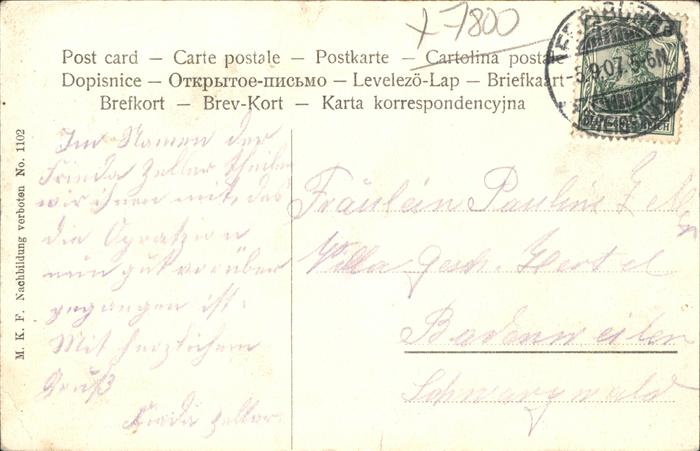 + 7800
Post card — Carte postale — Postkarte — Cartolina postale
Dopisnice — Открытое-письмо — Levelezö-Lap — Briefkaart
Brefkort — Brev-Kort — Karta korrespondencyjna
M. K. F. Nachbildung verboten No. 1102
Im Namen der
Frieda Zeller theilen
wir ihnen mit, das
die Opratzion
nun gut vorüber
gegangen ist.
Mit herzlichem
Gruß
Frieda Zeller.
-5.9.07. 5-6N
Fräulein Pauline Zeller
Villa Gesch. Hertel
Badenweiler
Schwarzwald